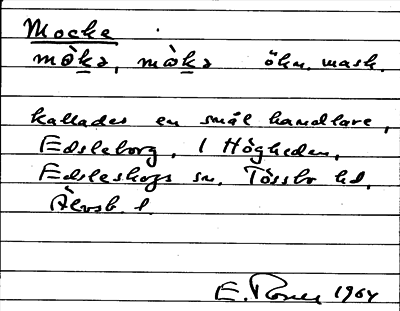 Mocke
mòkə, mòkə ökn. mask.
kallades en småhandlare,
Edsleborg, i Högheden,
Edsleskogs sn, Tössbo hd,
Älvsb. l.
E. 1964